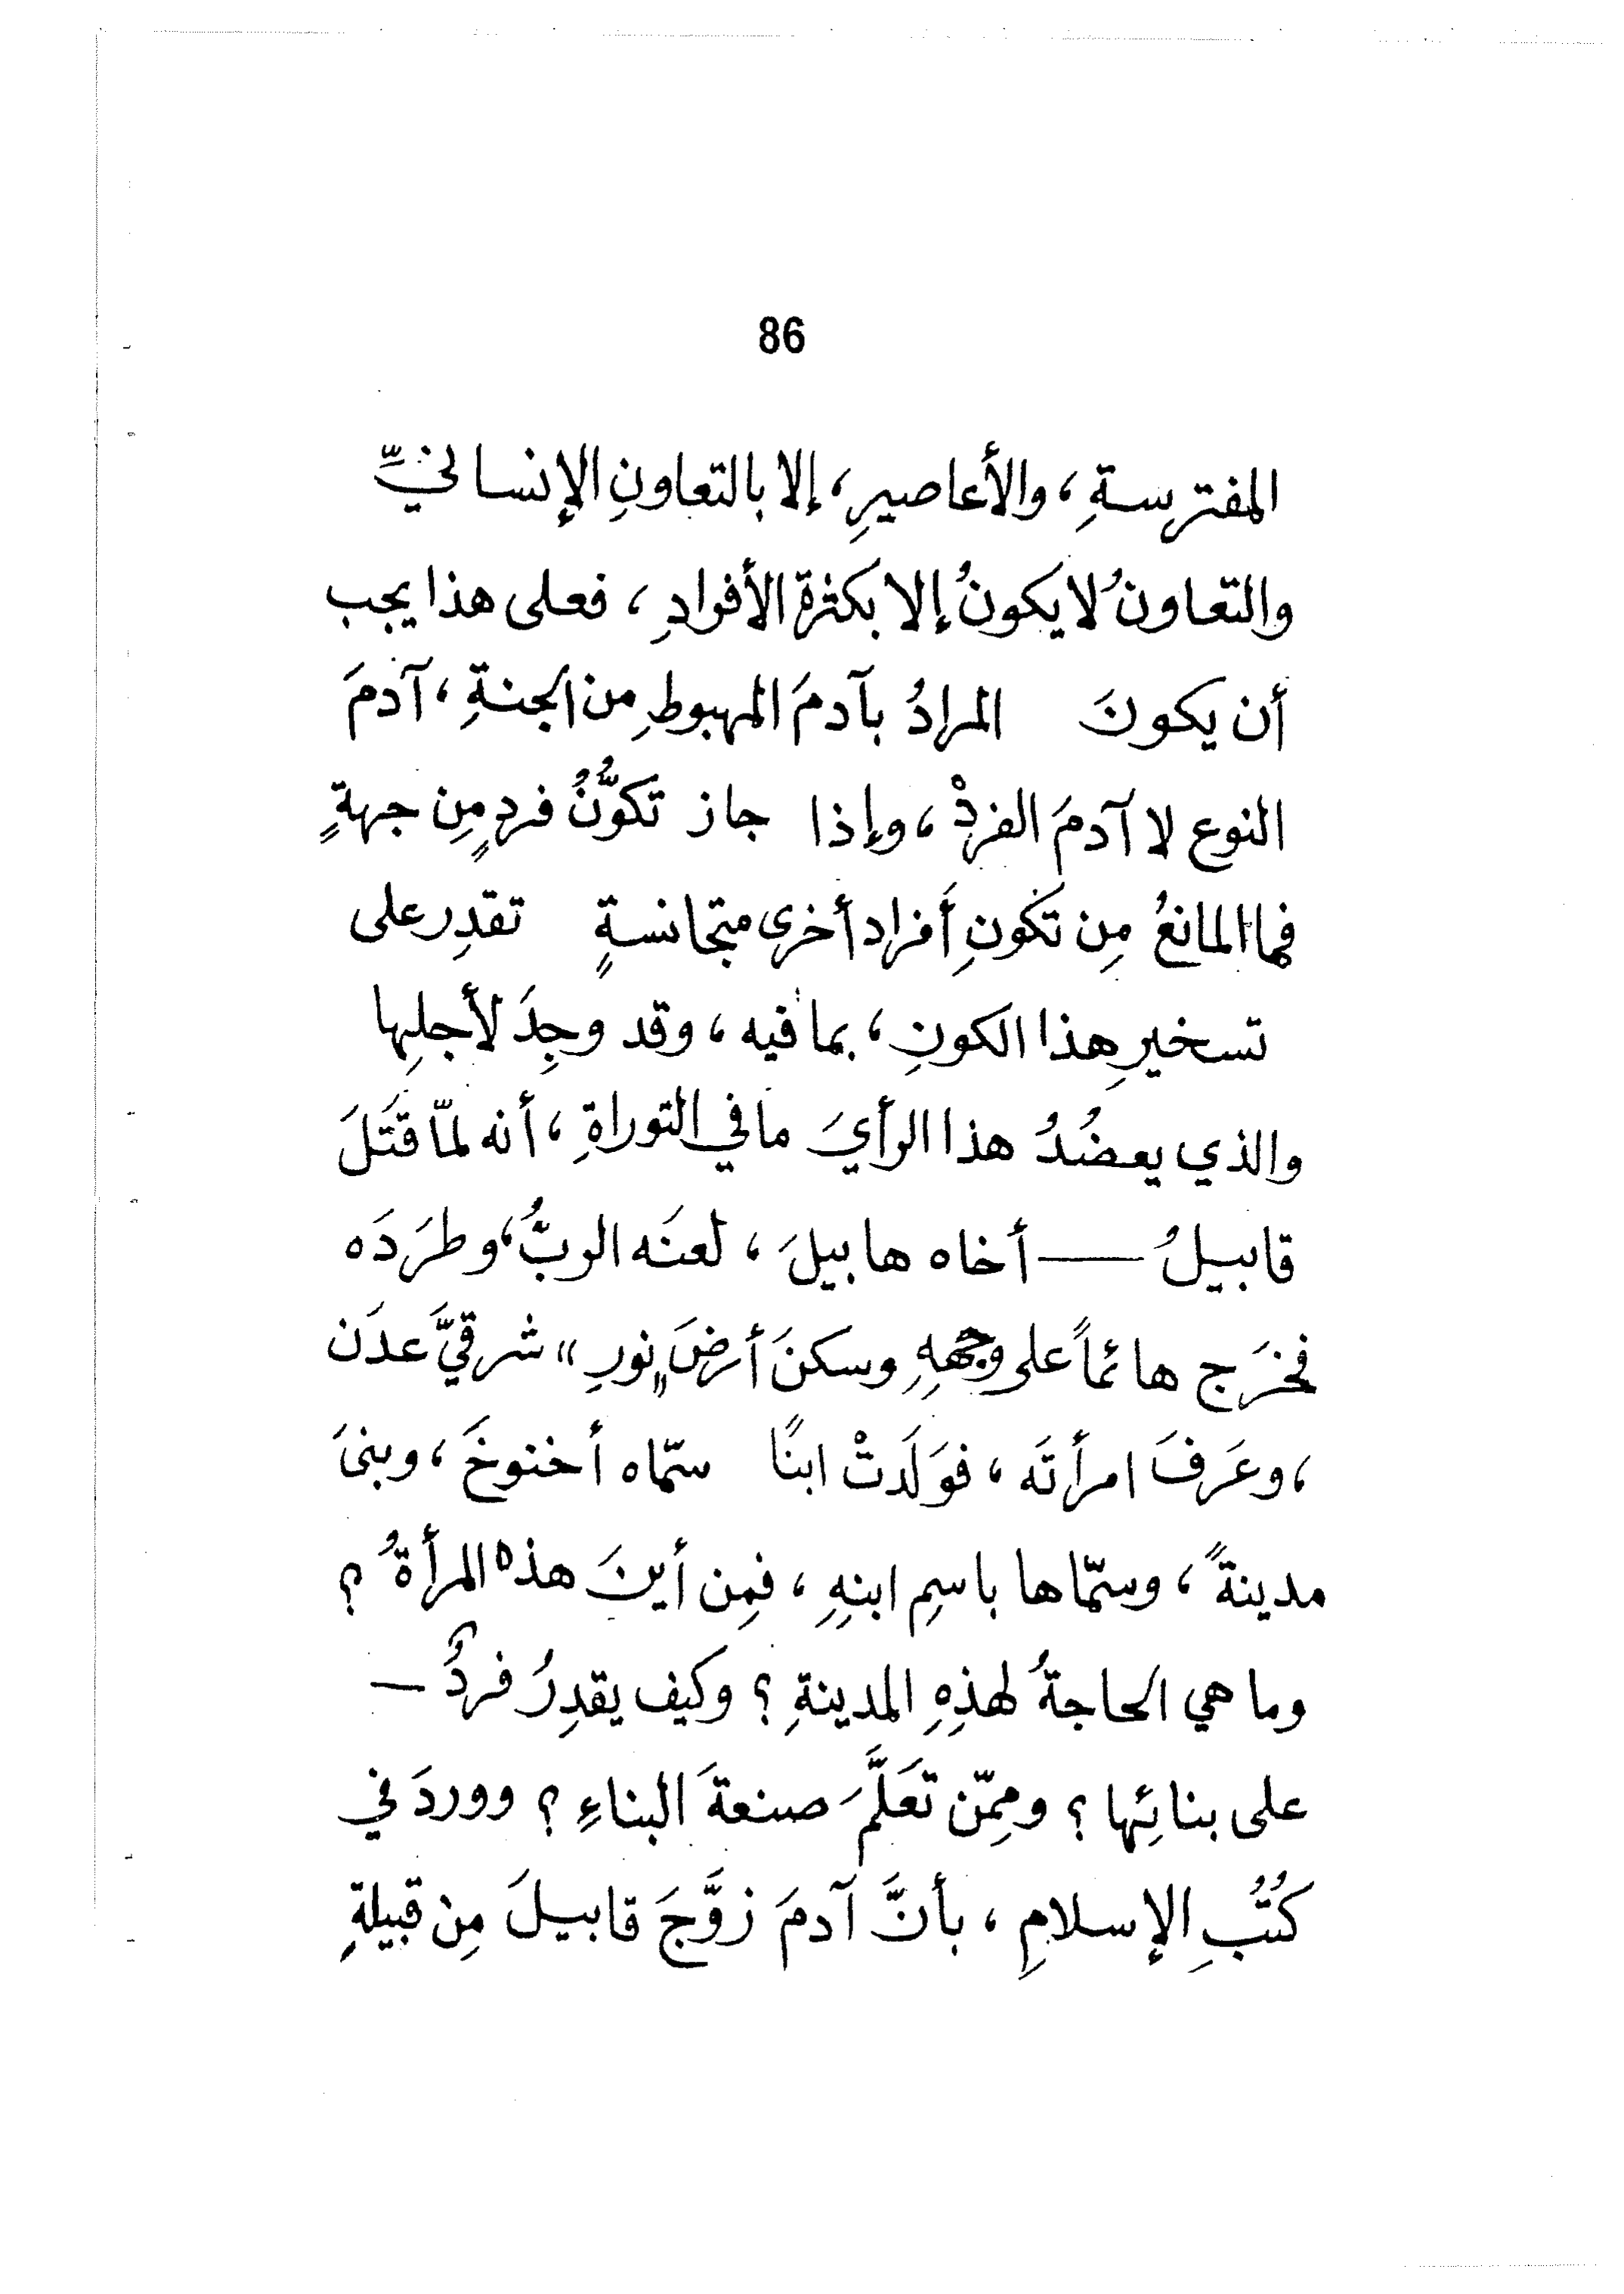 86
المفترسةِ، والأعاصيرِ، إلا بالتعاونِ الإنسانيِّ
والتعاونُ لا يكونُ إلا بكثرة الأفرادِ، فعلى هذا يجب
أن يكونَ المرادُ بآدمَ المهبوطِ من الجنةِ، آدمَ
النوع لا آدمَ الفردْ، وإذا جاز تكوُّنُ فردٍ مِن جهةٍ
فما المانعُ مِن تكونِ أفراد أخرى متجانسةٍ تقدِر على
تسخيرِ هذا الكونِ، بما فيه، وقد وجِدَ لأجلِها
والذي يعضُدُ هذا الرأيَ ما في التوراةِ، أنه لمّا قَتَلَ
قابيلُ — أخاه هابيلَ، لعنَه الربُّ، وطرَدَه
فخرَج هائماً على وجههِ وسكنَ أرضَ "نورِ" شرقيَّ عدَن
، وعَرفَ امرأتَه، فوَلَدَتْ ابنًا سمّاه أخنوخَ، وبنىَ
مدينةً، وسمّاها باسِمِ ابنِهِ، فمِن أينَ هذه المرأةُ؟
وما هي الحاجةُ لهذِهِ المدينةِ؟ وكيف يقدِرُ فردٌ —
على بنائِها؟ ومِمّن تعَلَّمَ صنعةَ البناءِ؟ ووردَ في
كتُبُِ الإسلامِ، بأنَّ آدمَ زوَّجَ قابيلَ مِن قبيلةِ